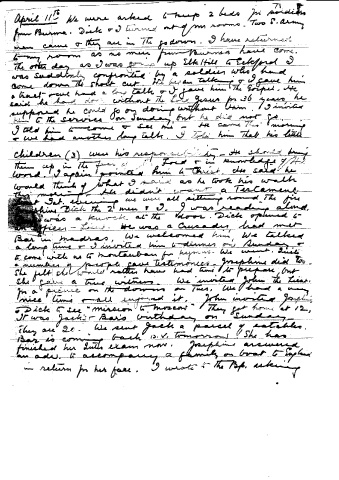 April 11th We were asked to keep 2 beds for soldiers
from Burma. Dick & I turned out of our rooms. Two S. Army
men came & they are in the godown. I have returned
to my room as no men from Burma have come.
The other day as I was going up Elk Hill to Eckford I
was suddenly confronted by a soldier who had
come down the short cut. We began talking & I gave him
a half-hour & a long talk & I gave him the Gospel. He
said he had done without the Lord Jesus for 36 years, he
supposed he could go on doing without Him. I invited
him to the service on Sunday but he did not go.
I told him to come & see me. He came this morning
& we had another long talk. I told him that his little
children (3) was his responsibility. He should bring
them up in the fear of the Lord & in knowledge of His
Word. I again pointed him to Christ. He said he
would think of what I said as he took his walk
this morning. He didn't want a Testament.
Sat. evening we were all sitting round the fire
Josephine Dick the 2 men & I. I was reading aloud.
was a knock at the door. Dick opened to
officer. He was a Crusader had met
Bar in Madras. We welcomed him. We talked
a long time & I invited him to dinner on Sunday &
to come with us to Montauban for hymns. We went Dick
& number of people gave testimonies. Josephine did too.
She felt she would rather have had time to prepare but
she gave a true witness. We invited John
for a picnic on the on Tues. We had a very
nice time & all enjoyed it. John invited Josephine
& Dick to see "Mission to Moscow". They got home at 12.
It was Jack & Bar's birthday on Sunday
They are 20. We sent Jack a parcel of eatables.
Bar is coming back D.V. tomorrow. She has
finished her Inter exam now. Josephine answered
an adv. to accompany a family on boat to England
in return for her fare. I wrote to the Bp. asking